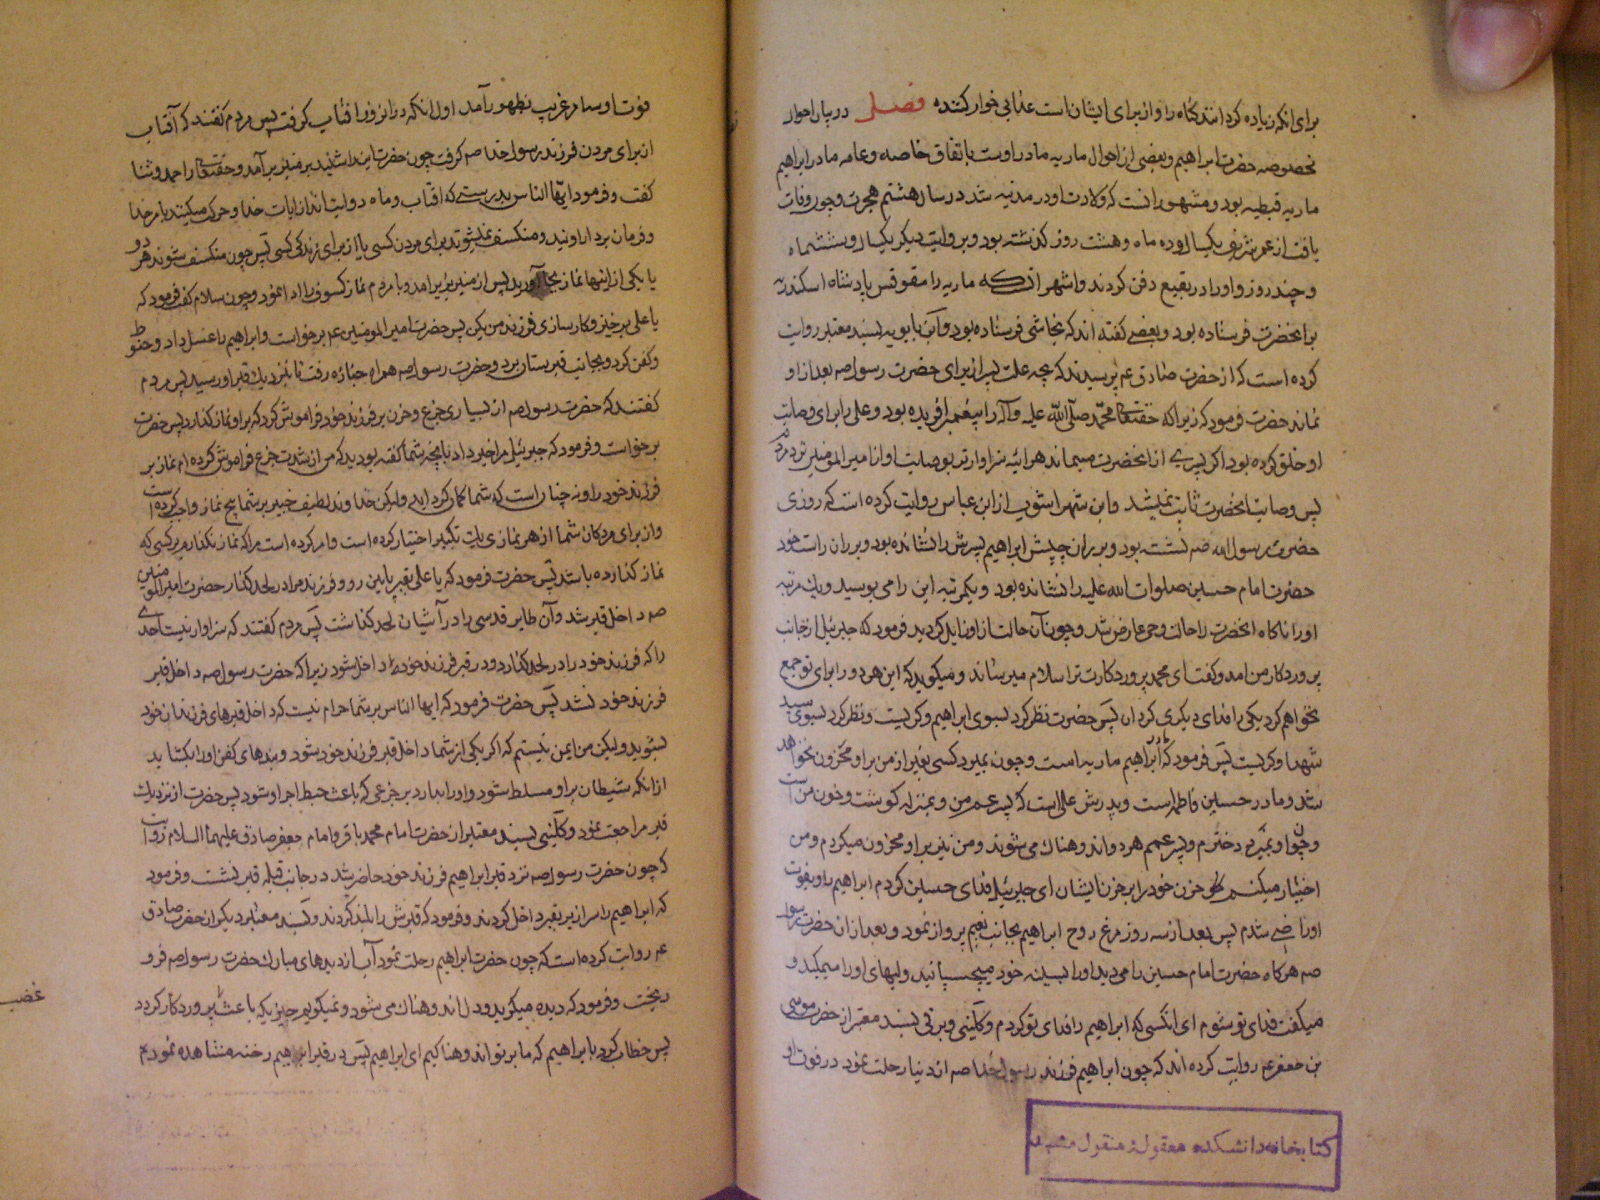 برای انکه زیاده کردانند کناه را و از برای ایشان است عذابی خوار کننده فصل در بیان احوال
بخصوصه حضرت ابراهیم و بعضی از احوال ماریه مادر اوست باتفاق خاصه و عامه مادر ابراهیم
ماریه قبطیه بود و مشهور انست که ولادت او در مدینه شد در سال هشتم هجرت و چون وفات
یافت از عمر شریفش یکسال و ده ماه و هشت روز کذشته بود و بروایت دیکر یکسال و ششماه
و چند روز و او را در بقیع دفن کردند و اشهر انست که ماریه را مقوقس پادشاه اسکندریه
برای انحضرت فرستاده بود و بعضی کفته اند که نجاشی فرستاده بود و ابن بابویه بسند معتبر روایت
کرده است که از حضرت صادق عم پرسیدند که بچه علت پسر از برای حضرت رسول صم بعد از او
نماند حضرت فرمود که زیرا که حقتعالی محمد صلی الله علیه و آله را پیغمبر افریده بود و علی را برای وصایت
او خلق کرده بود اکر پسری از انحضرت میماند هر اینه سزاوارتر بوصایت او از امیر المومنین نزد مردم
پس وصایت انحضرت ثابت نمیشد و ابن شهر اشوب از ابن عباس روایت کرده است که روزی
حضرت رسول الله صم نشسته بود و بر ران چپش ابراهیم پسرش را نشانده بود و بر ران راست خود
حضرت امام حسین صلوات الله علیه را نشانده بود و یکمرتبه این را می بوسید و یک مرتبه
او را ناکاه انحضرت را حالت وحی عارض شد و چون آن حالت از او زایل کردید فرمود که جبرئیل از جانب
پروردکار من امد و کفت ای محمد پروردکارت ترا سلام میرساند و میکوید که این هر دو را برای تو جمع
نخواهم کرد یکی را فدای دیکری کردان پس حضرت نظر کرد بسوی ابراهیم و کریست و نظر کرد بسوی سید
شهدا و کریست پس فرمود که ابراهیم مادرش ماریه است و چون بمیرد کسی بغیر از من بر او محزون نخواهد
شد و مادر حسین فاطمه است و پدرش علی است که پسر عم من و بمنزله کوشت و خون من است
و چون او بمیرد دخترم و پسر عمم هر دو اندوهناک می شوند و من نیز بر او محزون میکردم و من
اختیار میکنم حزن خود را بر حزن ایشان ای جبرئیل فدای حسین کردم ابراهیم را و بفوت
او راضی شدم پس بعد از سه روز مرغ روح ابراهیم بجانب نعیم پرواز نمود و بعد از ان حضرت رسول
صم هر کاه حضرت امام حسین را می دید او را بسینه خود میچسپانید و لبهای او را میمکید و
میکفت فدای تو شوم ای انکسی که ابراهیم را فدای تو کردم و کلینی و برقی بسند معتبر از حضرت موسی
بن جعفر عم روایت کرده اند که چون ابراهیم فرزند رسول خدا صم از دنیا رحلت نمود در فوت او
کتابخانه دانشکده معقول و منقول مشهد
فوت او سه امر غریب بظهور آمد اول انکه در انروز افتاب کرفت پس مردم کفتند که آفتاب
از برای مردن فرزند رسول خدا صم کرفت چون حضرت اینرا شنید بر منبر برآمد و حقتعالی را حمد و ثنا
کفت و فرمود ایها الناس بدرستی که افتاب و ماه دو ایت اند از ایات خدا و حرکت میکنند بامر خدا
و فرمان بردار اویند و منکسف نمیشوند برای مردن کسی یا از برای زندکی کسی پس چون منکسف شوند هر دو
یا یکی از اینها نماز بجا آورید پس از منبر بزیر امد و با مردم نماز کسوف را ادا نمود و چون سلام کفت فرمود که
یا علی برخیز و کارسازی فرزند من بکن پس حضرت امیر المومنین عم برخواست و ابراهیم را غسل داد و حنوط
و کفن کرد و بجانب قبرستان برد و حضرت رسول صم همراه جنازه رفت تا بنزدیک قبر او رسید پس مردم
کفتند که حضرت رسول صم از بسیاری جزع و حزن بر فرزند خود فراموش کرد که بر او نماز کذارد پس حضرت
برخواست و فرمود که جبرئیل مرا خبر داد بانچه شما کفته بودید که من از شدت جزع فراموش کرده ام نماز بر
فرزند خود را و نه چنان است که شما کمان کرده اید ولیکن خداوند لطیف خبیر بر شما پنج نماز واجب کرده است
و از برای مردکان شما از هر نمازی یک تکبیر اختیار کرده است و امر کرده است مرا که نماز نکذارم مکر بر کسی که
نماز کذارده باشد پس حضرت فرمود که یا علی بقبر پایین رو و فرزند مرا در لحد کذار حضرت امیر المومنین
صم داخل قبر شد و آن طایر قدسی را در آشیان لحد کذاشت پس مردم کفتند که سزاوار نیست احدی
را که فرزند خود را در لحد کذارد و در قبر فرزند خود داخل شود زیرا که حضرت رسول صم داخل قبر
فرزند خود نشد پس حضرت فرمود که ایها الناس بر شما حرام نیست که داخل قبرهای فرزندان خود
بشوید ولیکن من ایمن نیستم که اکر یکی از شما داخل قبر فرزند خود شود و بندهای کفن او را بکشاید
از انکه شیطان بر او مسلط شود و او را بدارد بر جزعی که باعث حبط اجر او شود پس حضرت از نزدیک
قبر مراجعت نمود و کلینی بسند معتبر از حضرت امام محمد باقر و امام جعفر صادق علیهما السلام روایت
که چون حضرت رسول صم نزد قبر ابراهیم فرزند خود حاضر شد در جانب قبله قبر نشست و فرمود
که ابراهیم را سرازیر بقبر داخل کردند و فرمود که قبرش را بلند کردند و بسند معتبر دیکر از حضرت صادق
عم روایت کرده است که چون حضرت ابراهیم رحلت نمود آب از دیدهای مبارک حضرت رسول صم فرو
ریخت و فرمود که دیده میکرید و دل اندوهناک می شود و نمیکویم چیزیکه باعث پروردکار کردد
غضب
پس خطاب کرد با ابراهیم که ما بر تو اندوهناکیم ای ابراهیم پس در قبر ابراهیم رخنه مشاهده نمود بـ